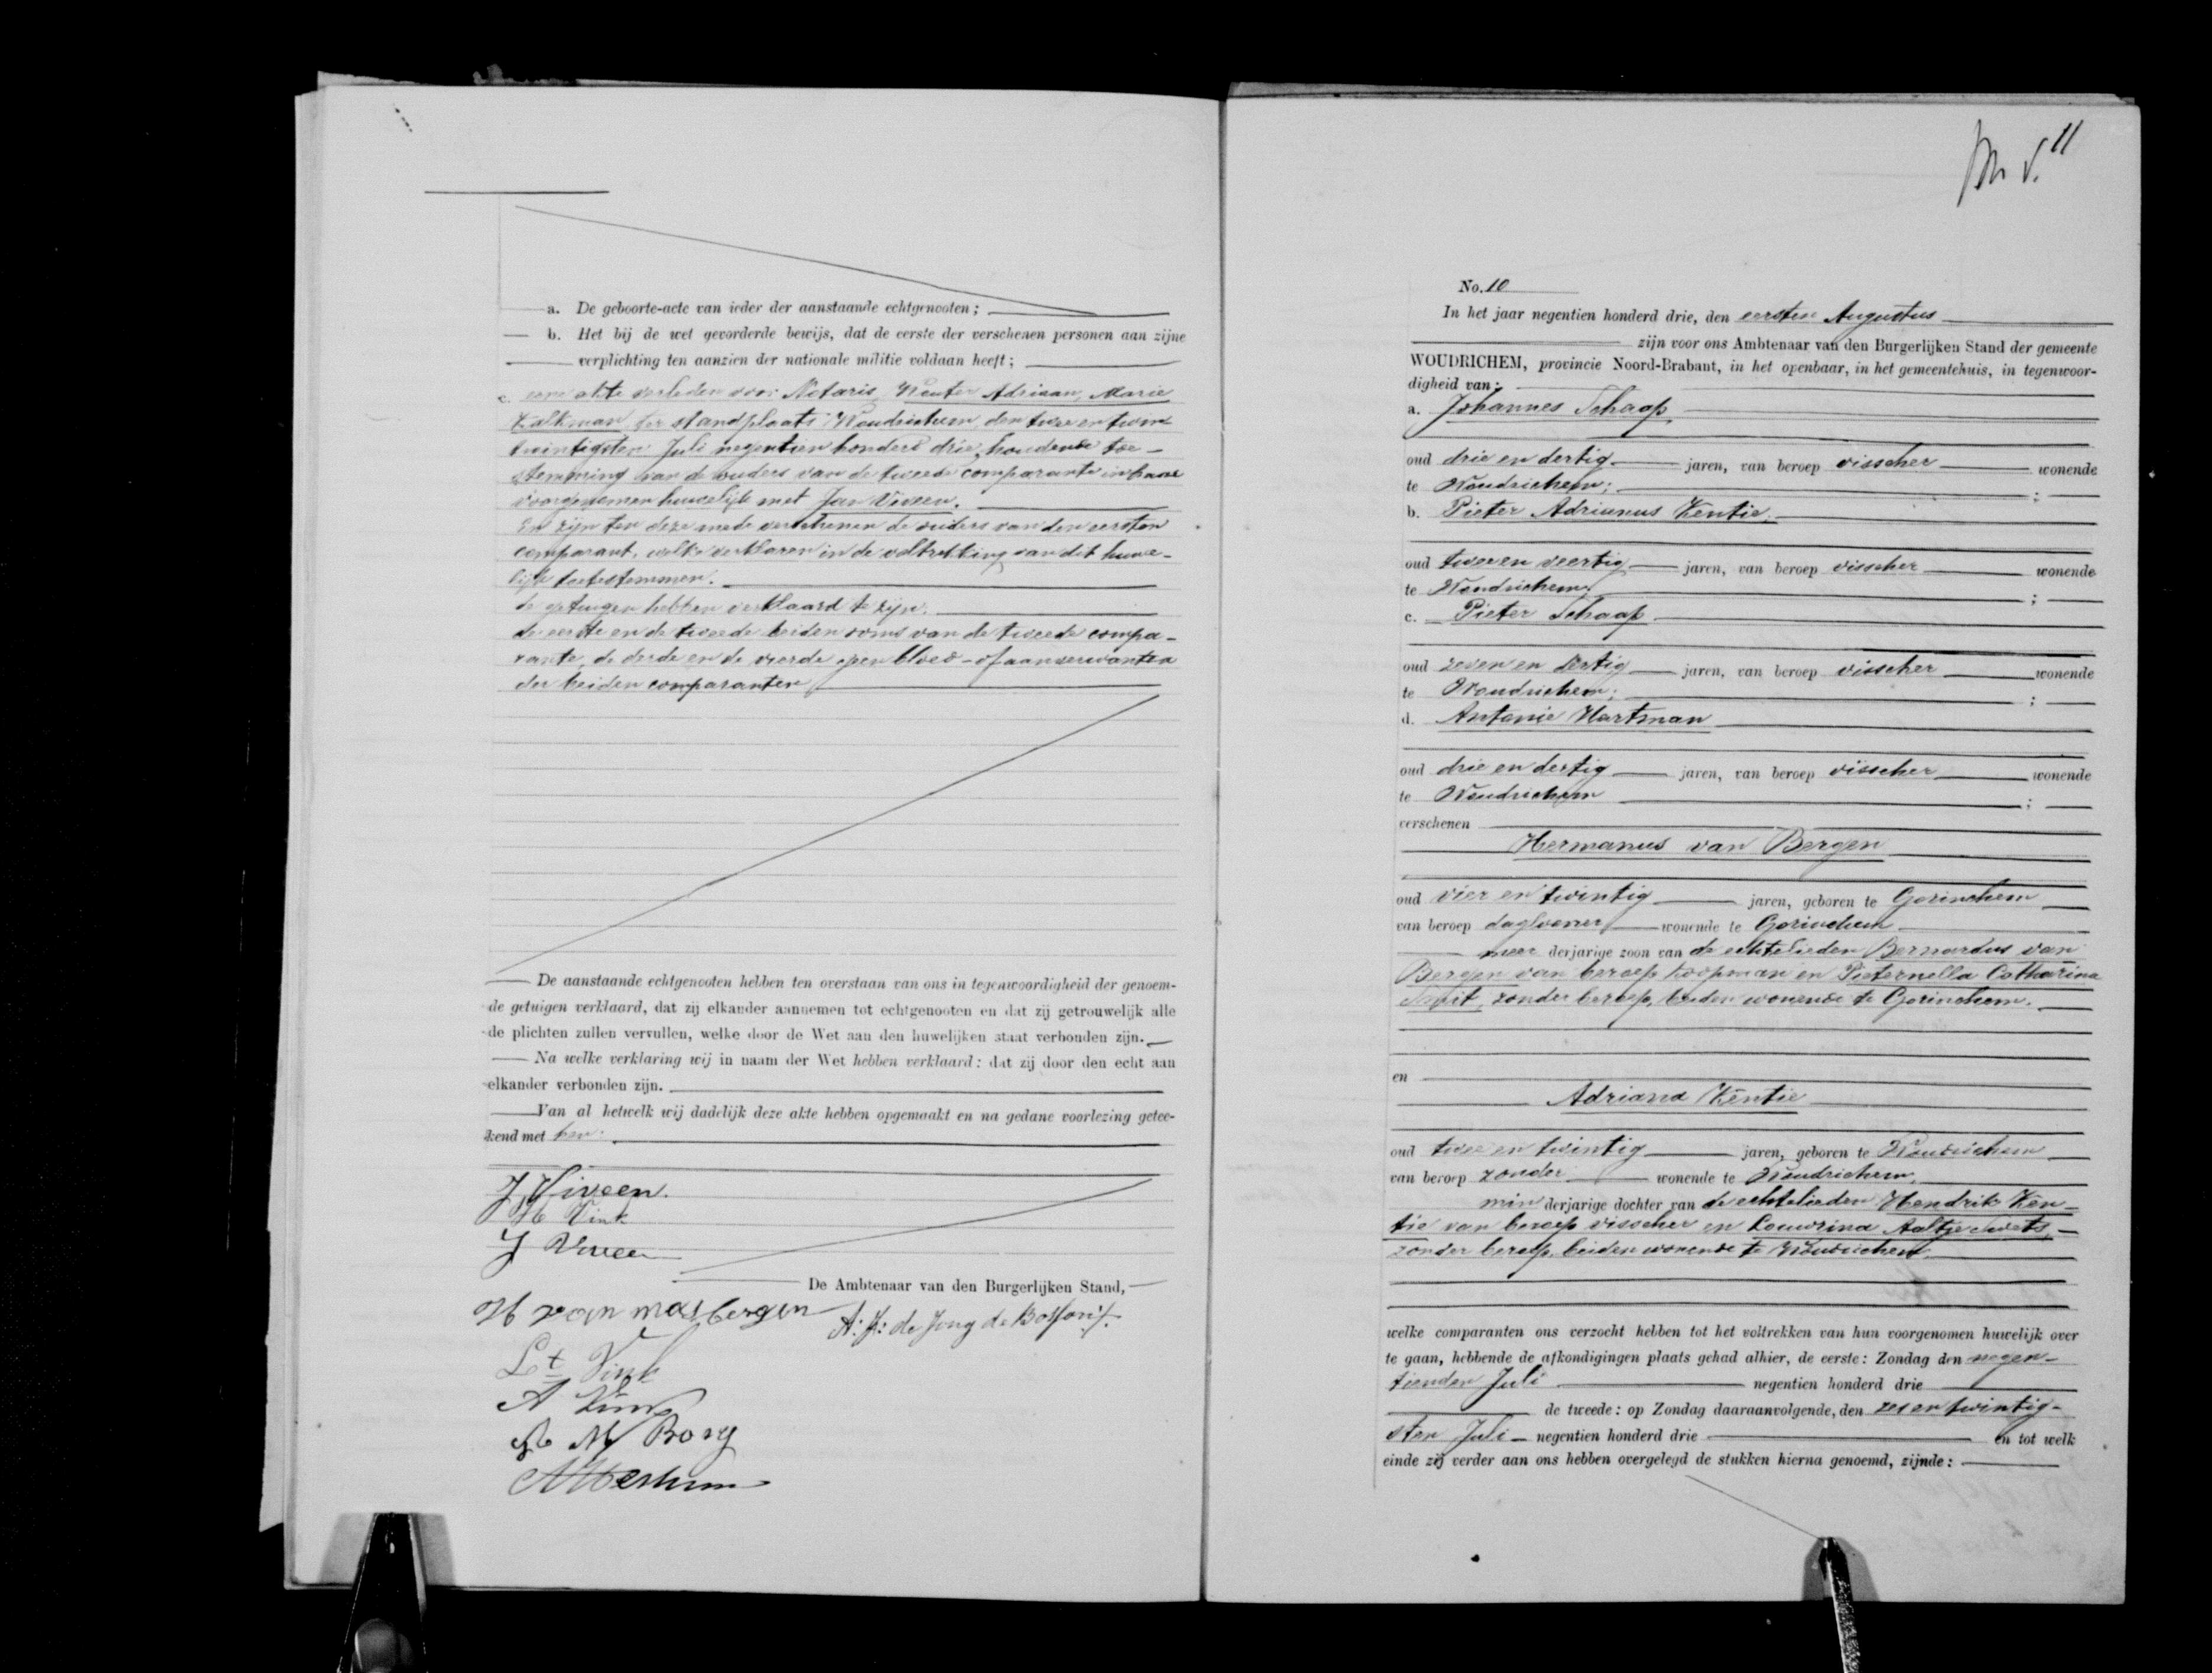 a. De geboorte-acte van ieder der aanstaande echtgenooten;
b. Het bij de wet gevorderde bewijs, dat de eerste der verschenen personen aan zijne
verplichting ten aanzien der nationale militie voldaan heeft;
c. eene akte verleden voor Notaris Wouter Adriaan Marie
Kalkman ter standplaats Woudrichem, den twee en twin
twintigsten Juli negentien honderd drie, houdende toe-
stemming van de ouders van de tweede comparante in haar
voorgenomen huwelijk met Jan Viveen.
En zijn ten deze mede verschenen de ouders van den eersten
comparant, welke verklaren in de voltrekking van dit huwe-
lijk toetestemmen.
de getuigen hebben verklaard te zijn:
de eerste en de tweede beiden ooms van de tweede compa-
rante, de derde en de vierde geen bloed- of aanverwanten
der beiden comparanten
De aanstaande echtgenooten hebben ten overstaan van ons in tegenwoordigheid der genoem-
de getuigen verklaard, dat zij elkander aannemen tot echtgenooten en dat zij getrouwelijk alle
de plichten zullen vervullen, welke door de Wet aan den huwelijken staat verbonden zijn.
Na welke verklaring wij in naam der Wet hebben verklaard: dat zij door den echt aan
elkander verbonden zijn.
Van al hetwelk wij dadelijk deze akte hebben opgemaakt en na gedane voorlezing getee-
kend met hen.
J Viveen.
Vink
J Viveen
De Ambtenaar van den Burgerlijken Stand,
H van masbergen
de Jong de
Vink
A
M Borg
11
No. 10
In het jaar negentien honderd drie, den eersten Augustus
zijn voor ons Ambtenaar van den Burgerlijken Stand der gemeente
WOUDRICHEM, provincie Noord-Brabant, in het openbaar, in het gemeentehuis, in tegenwoor-
digheid van:
a. Johannes Schaap
oud drie en dertig jaren, van beroep visscher wonende
te Woudrichem; ;
b. Pieter Adrianus Kentie
oud twee en veertig jaren, van beroep visscher wonende
te Woudrichem; ;
c. Pieter Schaap
oud zeven en dertig jaren, van beroep visscher wonende
te Woudrichem; ;
d. Antonie Hartman
oud drie en dertig jaren, van beroep visscher wonende
te Woudrichem ;
verschenen
Hermanus van Bergen
oud vier en twintig jaren, geboren te Gorinchem
van beroep daglooner wonende te Gorinchem
meer derjarige zoon van de echtelieden Bernardus van
Bergen van beroep koopman en Pieternella Catharina
Smit, zonder beroep, beiden wonende te Gorinchem.
en
Adriana Kentie
oud twee en twintig jaren, geboren te Woudrichem
van beroep zonder wonende te Woudrichem,
min derjarige dochter van de echtelieden Hendrik Ken-
tie van beroep visscher en Louwrina Aaltje Swets,
zonder beroep, beiden wonende te Woudrichem,
welke comparanten ons verzocht hebben tot het voltrekken van hun voorgenomen huwelijk over
te gaan, hebbende de afkondigingen plaats gehad alhier, de eerste: Zondag den negen-
tienden Juli negentien honderd drie
de tweede: op Zondag daaraanvolgende, den zes en twintig-
sten Juli negentien honderd drie en tot welk
einde zij verder aan ons hebben overgelegd de stukken hierna genoemd, zijnde: